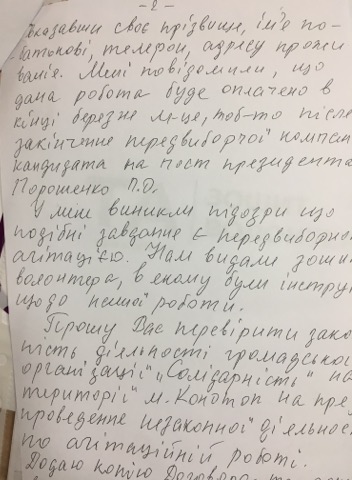 - 2 -
вказавши своє прізвище, ім'я по-
батькові, телефон, адресу прожи
вання. Мені повідомили, що
дана робота буде оплачено в
кінці березне м-це, тоб-то після
закінчення передвиборчої компан
кандидата на пост президента
Порошенко П.О.
У мене виникли підозри що
подібні завдання є передвиборно
агітацією. Нам видали зоши
волонтера, в якому були інструк
щодо нашої роботи.
Прошу Вас перевірити зако
ність діяльності громадсько
організації "Солідарність" на
території м. Конотоп на пре
проведення незаконної діяльнос
по агітаційній роботі.
Додаю копію Договора